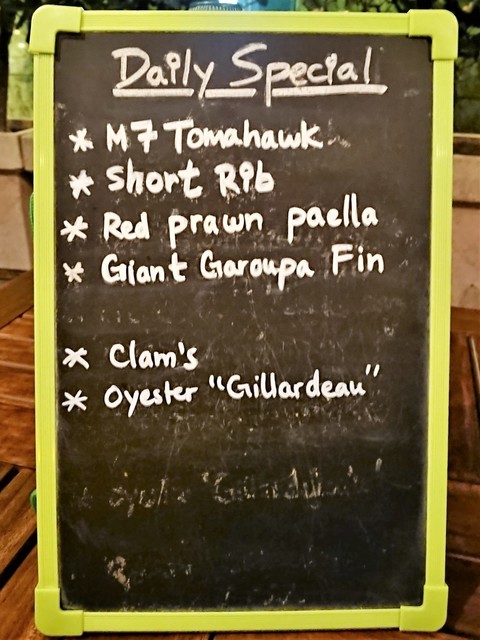 Daily Special
* M7 Tomahawk
* Short Rib
* Red prawn paella
* Giant Garoupa Fin
* Clam's
* Oyester "Gillardeau"